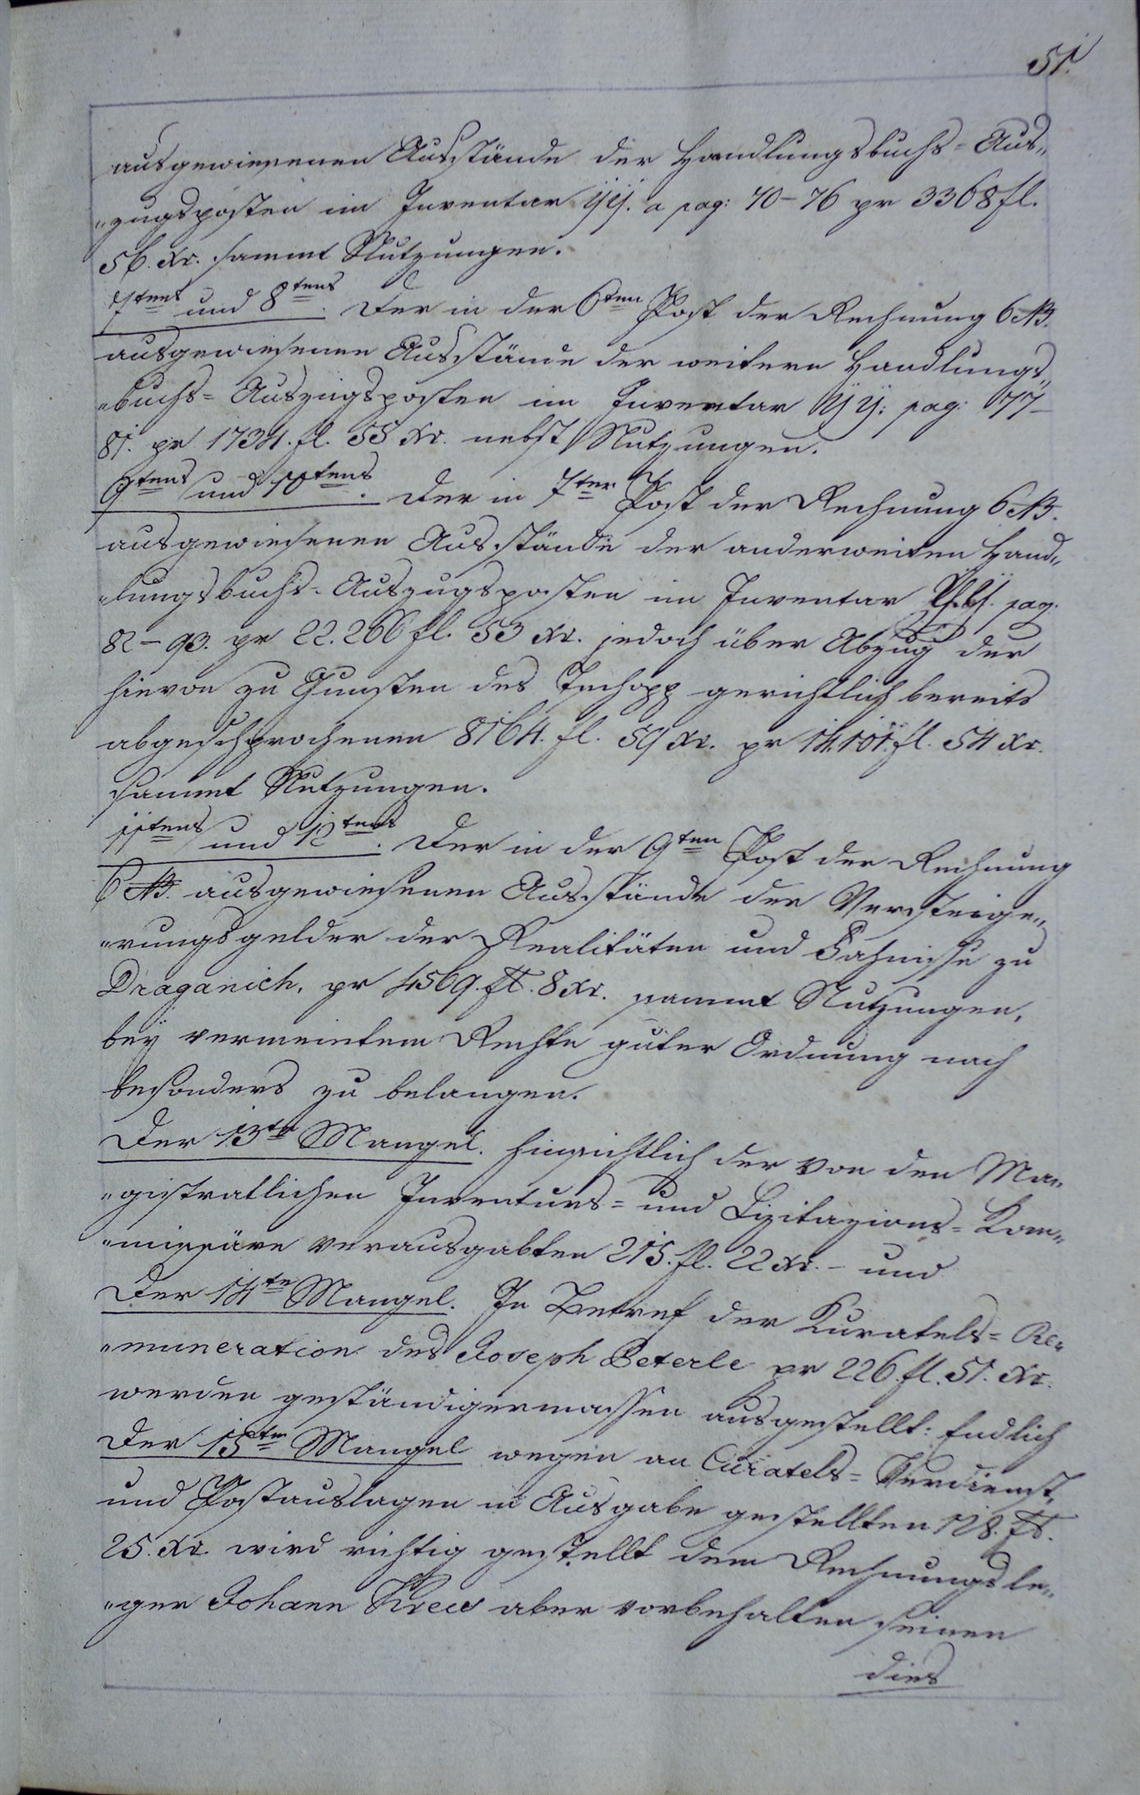 51.
ausgewiesenen Ausstände der Handlungsbuchs=Aus„
„zugsposten im Inventar ÿÿ. a pag: 70–76 pr 3368 fl.
56. xr. sammt Nutzungen.
7tens und 8tens. Der in der 6ten Post der Rechnung 6 B.
ausgewiesenen Ausstände der weitern Handlungs„
„buchs=Auszugsposten im Inventar ÿÿ: pag: 77–
81. pr 1734. fl. 58 xr. nebst Nutzungen.
9tens und 10tens. Der in 7ter Post der Rechnung 6 B.
ausgewiesenen Ausstände der anderweiten Hand„
„lungsbuchs=Auszugsposten im Inventar pag.
82–93. pr 22.266 fl. 53 xr. jedoch über Abzug der
hievon zu Gunsten des Tschopp gerichtlich bereits
abgesprochenen 8164. fl. 59 xr. pr 14.101. fl. 54 xr.
sammt Nutzungen.
11tens und 12tens. Der in der 9ten Post der Rechnung
6 B. ausgewiesenen Ausstände der Versteige„
„rungsgelder der Realitäten und Fahrnisse zu
Draganich, pr 4569. fl. 8 xr. sammt Nutzungen,
beÿ vermeintem Rechte guter Ordnung nach
besonders zu belangen.
Der 13te Mangel. Hinsichtlich der von den Ma„
„gistratlichen Inventurs= und Lizitazions=Kom„
„missäre verausgabten 215. fl. 22 xr. – und
Der 14te Mangel. In Betref der Kuratels=Re„
„muneration des Joseph Peterle pr 226 fl. 51. xr.
werden geständigermassen ausgestellt: Endlich
Der 15te Mangel wegen an Curatels=Verdienst,
und Postauslagen in Ausgabe gestellten 128. fl.
25. xr. wird richtig gestellt dem Rechnungsle„
„ger Johann aber vorbehalten seinen
dies